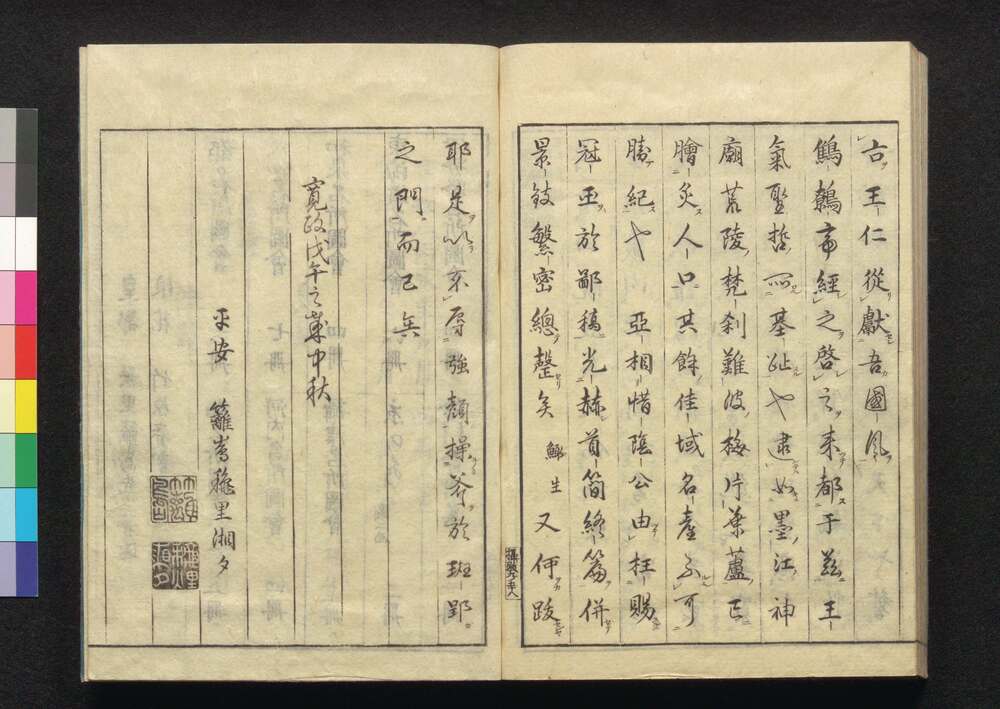 古王仁從獻吾國風
鷦鷯帝經之啓之来都于茲王
氣聖哲四基趾也逮如墨江神
廟荒陵梵刹難波梅片葉蘆已
膾炙人口其餘佳域名產不可
勝紀也亞相惜陰公由枉賜
冠玉於鄙稿光赫首簡終篇併
景致繁密總整矣鯫生又何跋
耶是以不辱強顏操斧於班郢
之門而已矣
寛政戊午之歳中秋
平安 籬島穐里湘夕
籬島
穐里
湘夕